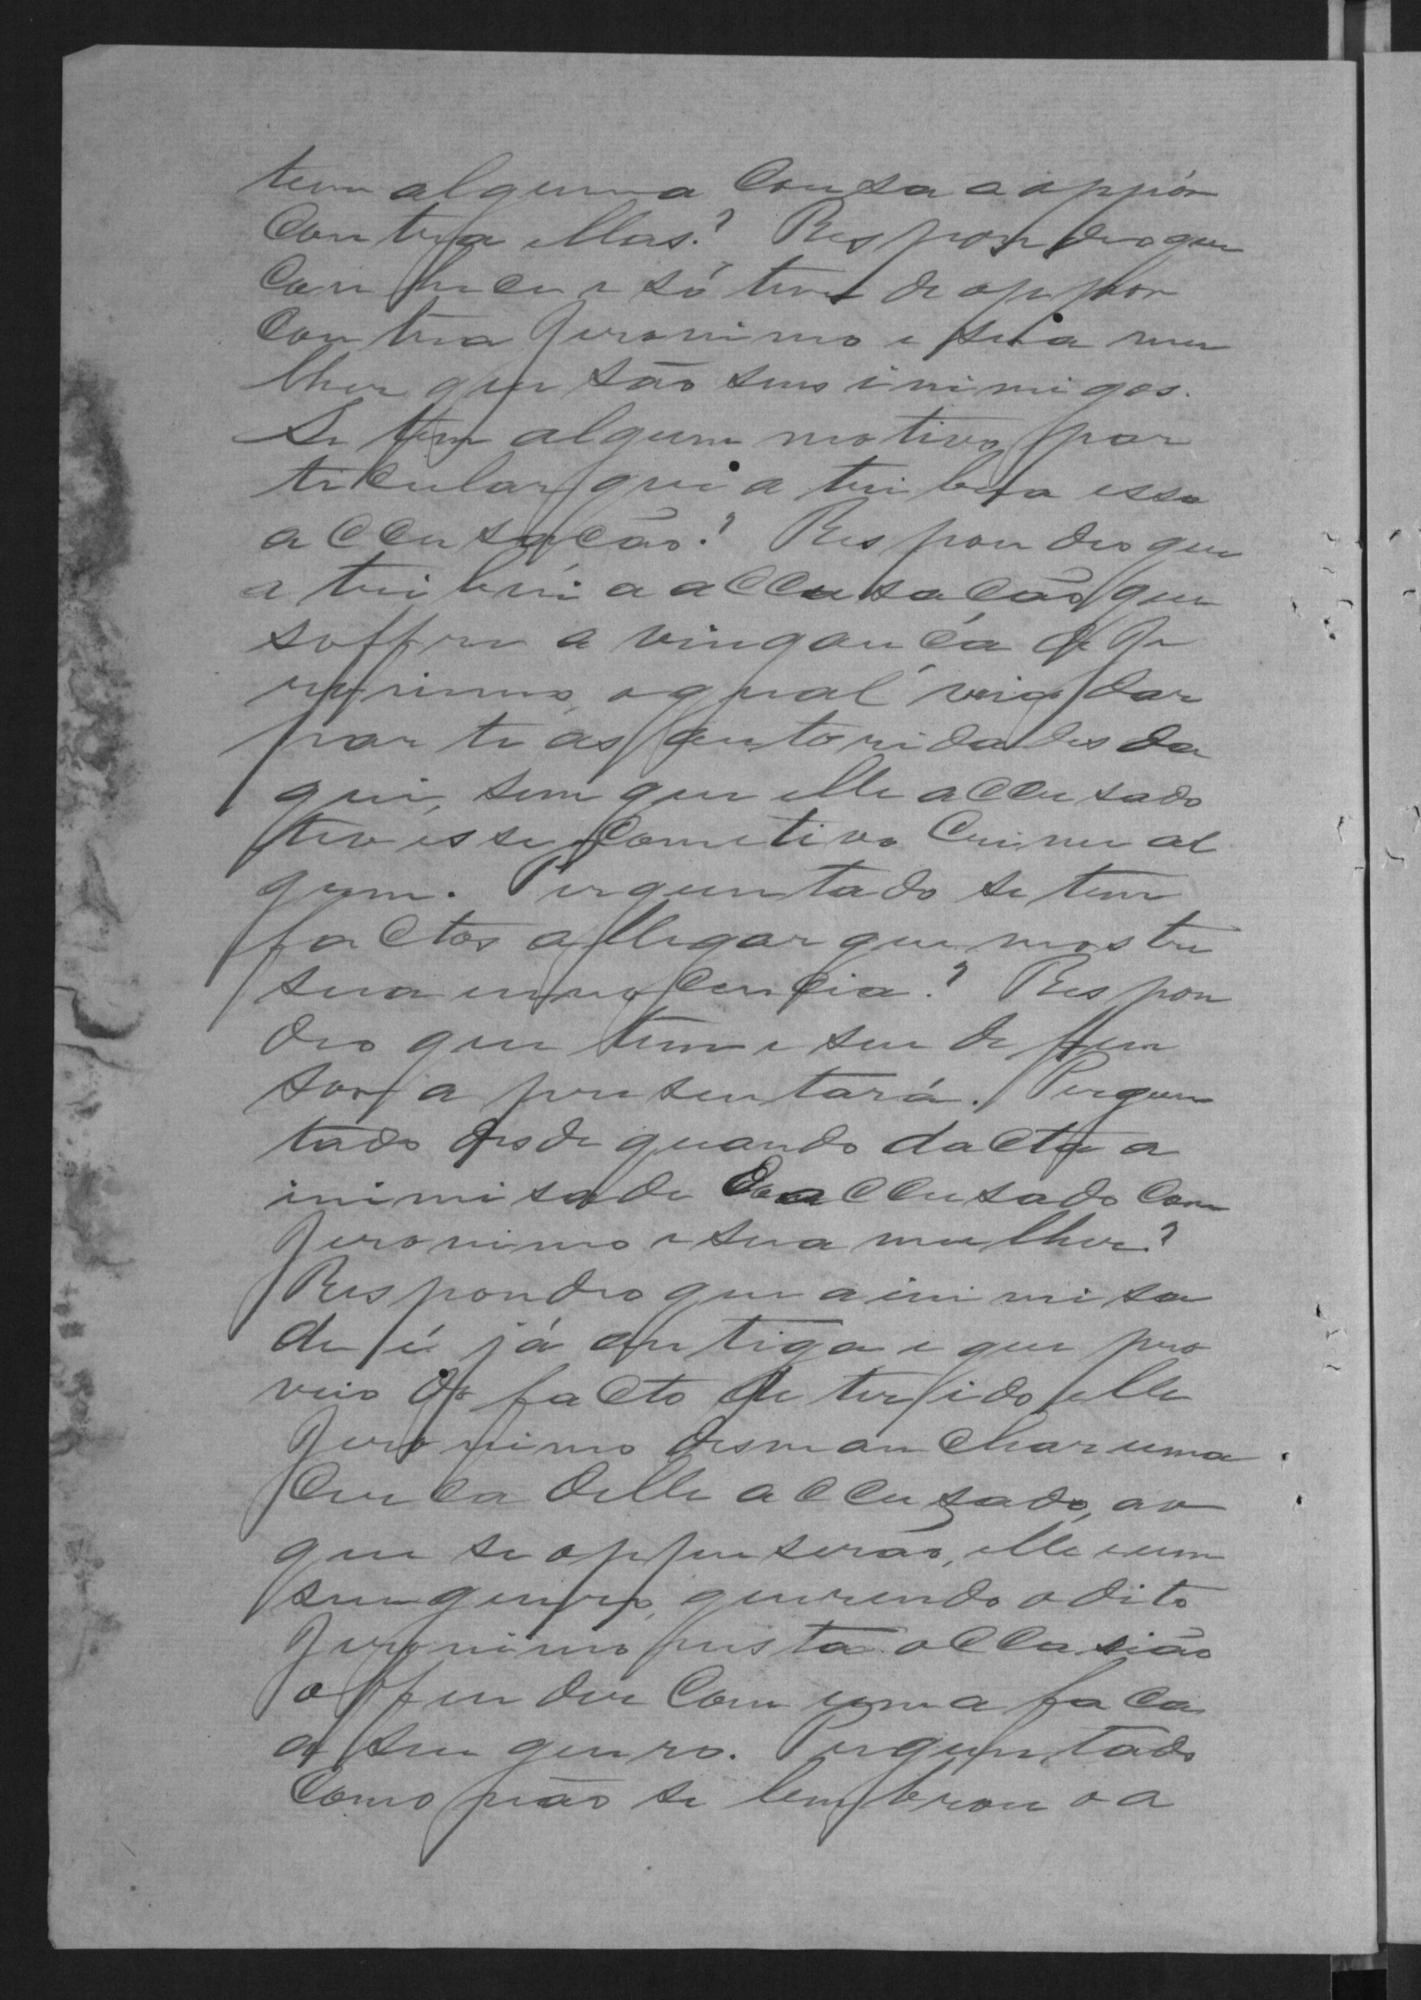 tem alguma cousa a oppôr
contra ellas? Respondeo que
conhece e só tem de oppor
contra Jeronimo e sua mu
lher que são seus inimigos.
Se tem algum motivo par
ticular que atribua essa
accusação? Respondeo que
atribui a accusação que
soffre a vingança de Je
ronimo, o qual veio dar
parte as autoridades da
qui, sem que elle accusado
tivesse cometivo crime al
gum. Perguntado se tem
factos a allegar que mostre
sua innocencia? Respon
deo que tem e seu defen
sor apresentará. Pergun
tado desde quando dacta a
inimisade do accusado com
Jeronimo e sua mulher?
Respondeo que a inimisa
de é já antiga e que pro
veio do facto de ter ido elle
Jeronimo desmanchar uma
cerca delle accusado, ao
que se oppuserão, elle e um
seu genro, querendo o dito
Jeronimo nesta occasião
offender com uma faca
a seu genro. Perguntado
como não se lembrou o a